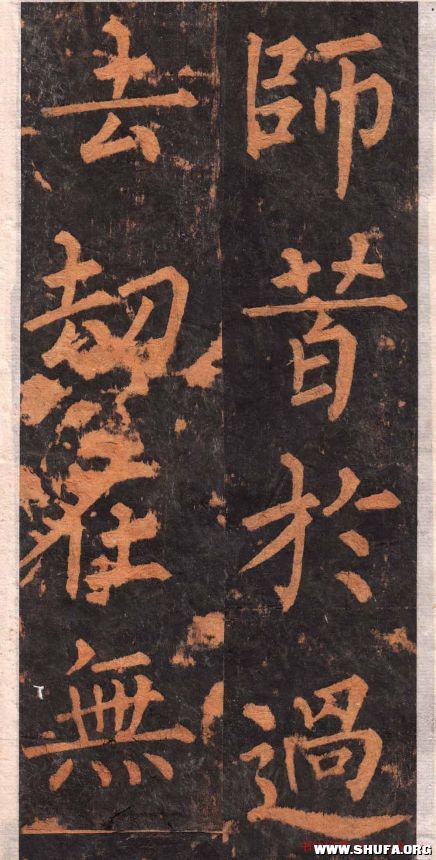 師昔於過
去刼無
WWW.SHUFA.ORG